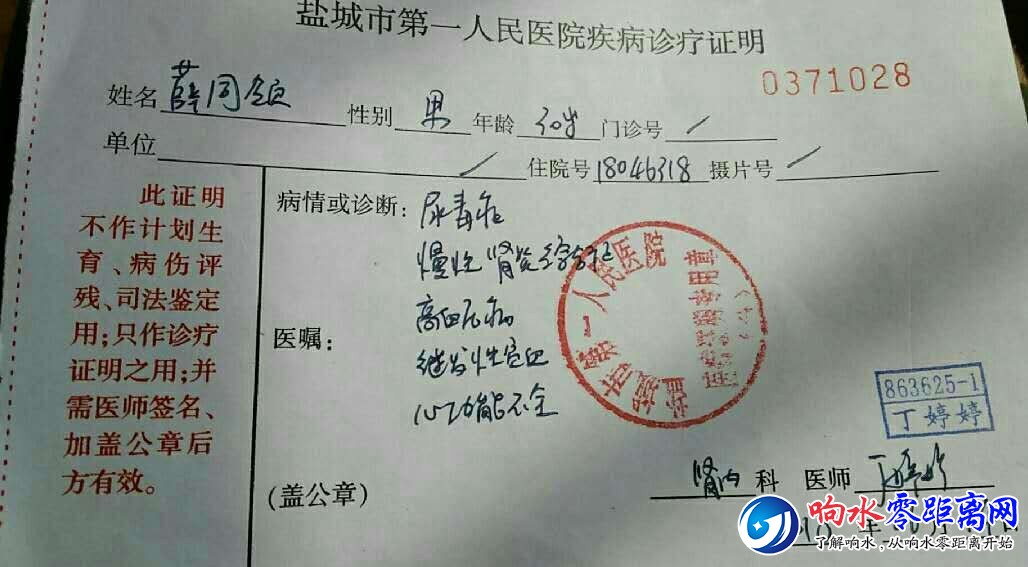 盐城市第一人民医院疾病诊疗证明
0371028
姓名 薛同领 性别 男 年龄 30岁 门诊号 /
单位 / 住院号 18046318 摄片号 /
此证明
不作计划生
育、病伤评
残、司法鉴定
用;只作诊疗
证明之用;并
需医师签名、
加盖公章后
方有效。
病情或诊断: 尿毒症
慢性肾炎综合征
高血压病
医嘱:
继发性贫血
心功能不全
盐城市第一人民医院
863625-1
丁婷婷
(盖公章)
肾内 科 医师 丁婷婷
年 月
响水零距离网
了解响水,从响水零距离开始